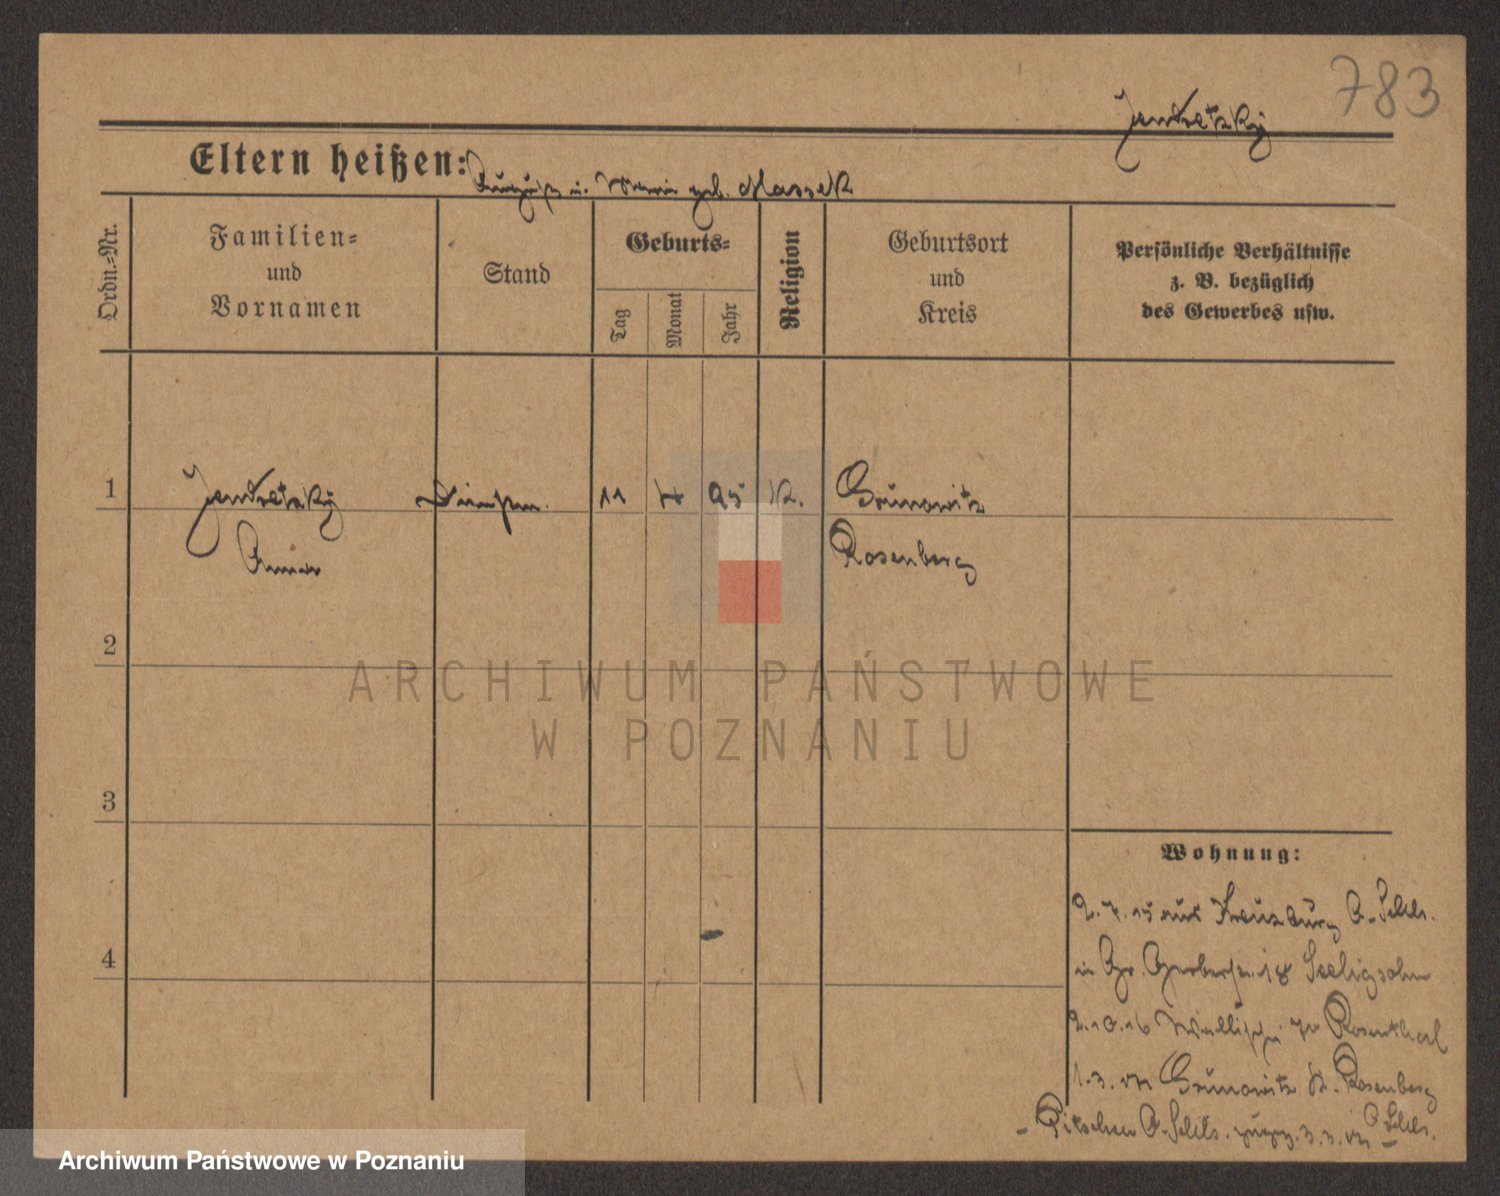 783
Jendretzky
Eltern heißen: August u. Maria geb. Massek
Ordn.-Nr.
Familien-
und
Vornamen
Stand
Geburts-
Tag
Monat
Jahr
Religion
Geburtsort
und
Kreis
Persönliche Verhältnisse
z. B. bezüglich
des Gewerbes usw.
1 Jendretzky 11 95 K. Grunowitz
Anna Rosenberg
2
3
4
Wohnung:
2.7.15 aus Kreuzburg O.-Schls.
in Gr. Gerberstr. 18 Seeligsohn
2.10.16 Wallischei Rosenthal
1.3. Grunowitz K. Rosenberg
Pitschen O.-Schls. 3.3. O.Schls.
ARCHIWUM PAŃSTWOWE
W POZNANIU
Archiwum Państwowe w Poznaniu